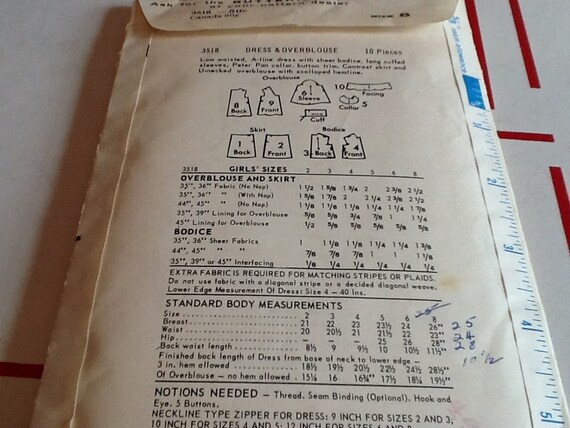 Ask for the BUTTER
at your pattern dealer
3518
Canada
SIZE 8
3518 DRESS & OVERBLOUSE 10 Pieces
Low waisted, A-line dress with sheer bodice, long cuffed
sleeves, Peter Pan collar, button trim. Contrast skirt and
overblouse with scalloped hemline.
Overblouse
8 Back
9 Front
6 Sleeve
10 Facing
Collar 5
Cuff
Skirt Bodice
1 Back
2 Front
3 Back
4 Front
3518 GIRLS' SIZES 2 3 4 5 6 8
OVERBLOUSE AND SKIRT
35", 36" Fabric (No Nap) 1 1/2 1 5/8 1 3/4 2 2 3/8 2 1/2
35", 36" " (With Nap) 1 5/8 1 7/8 2 2 1/4 2 3/8 2 3/4
44", 45" " (No Nap) 1 1/8 1 1/4 1 3/8 1 7/8
35", 39" Lining for Overblouse 5/8 5/8 3/4 7/8 1 1 1/4
45" Lining for Overblouse 1/2 5/8 5/8 5/8
BODICE
35", 36" Sheer Fabrics 1 1 1 1/8 1 1/4 1 3/8
44", 45" " " 7/8 7/8 7/8 1 1 1/8
35", 39" or 45" Interfacing 1/8 1/4 1/4 1/4 1/4 1/4
EXTRA FABRIC IS REQUIRED FOR MATCHING STRIPES OR PLAIDS.
Do not use fabric with a diagonal stripe or a decided diagonal weave.
Lower Edge Measurement Of Dress: Size 4 – 40 Ins.
STANDARD BODY MEASUREMENTS
Size 2 3 4 5 6 8
Breast 21 22 23 23½ 24 26" 25
Waist 20 20½ 21 21½ 22 23" 24
Hip - - - 25 26 28" 28
Back waist length 8½ 9 9½ 10 10½ 11½" 10 1/2
Finished back length of Dress from base of neck to lower edge –
3 in. hem allowed 18½ 19½ 20½ 22½ 24½ 28½"
Of Overblouse – no hem allowed 15¼ 16 16¾" 17½ 18¼ 19½"
NOTIONS NEEDED – Thread. Seam Binding (Optional). Hook and
Eye. 5 Buttons.
NECKLINE TYPE ZIPPER FOR DRESS: 9 INCH FOR SIZES 2 AND 3;
10 INCH FOR SIZES 4 AND 5; 12 INCH FOR SIZES 6